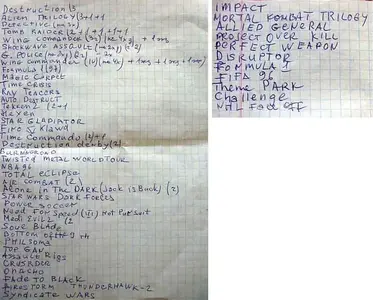 Destruction B
Alien Trilogy 3+1+1
Detective (na 20)
TOMB RAIDER (2+1+1+1+1
Wing Commander
Shockwave Assault
G. Police
Wing Commander (IV)
Formula 1
Magic Carpet
Time Crisis
Ray Tracers
Auto Destruct
Tekken 2 (2+1
Hexen
STAR GLADIATOR
Fire & Klawd
Time Commando (4)+1
Destruction derby(2)
BURNINGROAD
TWISTED METAL WORLD TOUR
NBA 96
TOTAL eclipse
AIR COMBAT (2)
Alone in The DARK (Jack is Back) (2)
STAR WARS DARK FORCES
Power soccer
Need For Speed Hot Pursuit
Medi Evil 2
Soul Blade
Bottom of the 9 th
PHILSOMA
TOP GAN
Assault Rigs
CRUSADER
FADE to BLACK
FIRESTORM THUNDERHAWK-2
Syndicate WARS
IMPACT
MORTAL KOMBAT TRILOGY
ALLIED GENERAL
PROJECT OVER KILL
PERFECT WEAPON
DISRUPTOR
FORMULA 1
FIFA 96
Theme PARK
Challenge
NHL Face Off